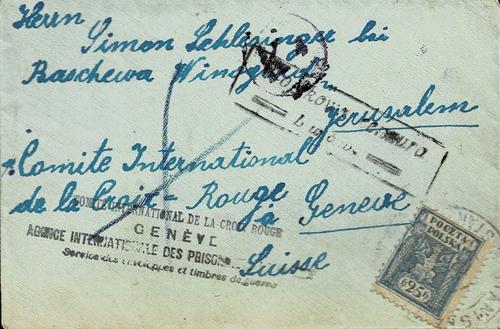 Herrn
Simon Schlesinger bei
Raschewa
Jerusalem
Comite International
de la Croix-Rouge
à Geneve
Suisse
COMITÉ INTERNATIONAL DE LA CROIX ROUGE
GENÈVE
AGENCE INTERNATIONALE DES PRISON
Service des enveloppes et timbres de guerre
POCZTA
POLSKA
25 F